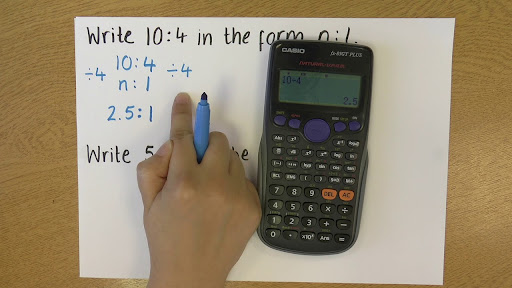 Write 10:4 in the form n:1.
÷4 10:4 ÷4
n:1
2.5:1
Write 5 he
CASIO fx-83GT PLUS
10÷4
2.5
7 8 9 DEL AC
4 5 6 × ÷
1 2 3 + −
0 . ×10ˣ Ans =